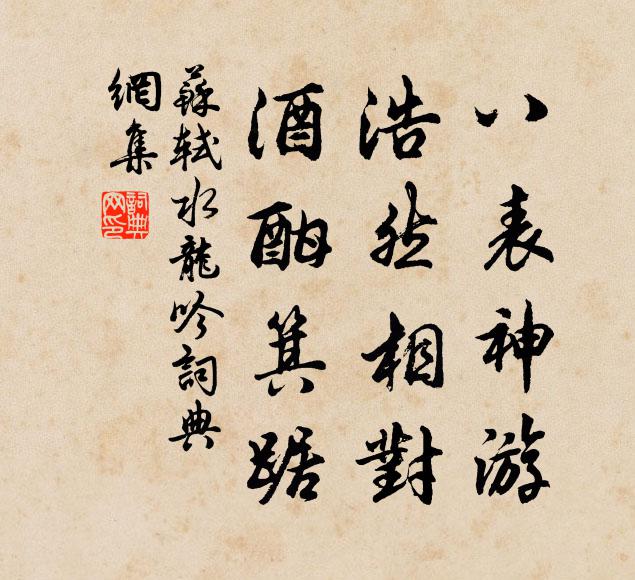 八表神游
浩然相對
酒酣箕踞
蘇軾水龍吟詞典
網集
詞典
网印